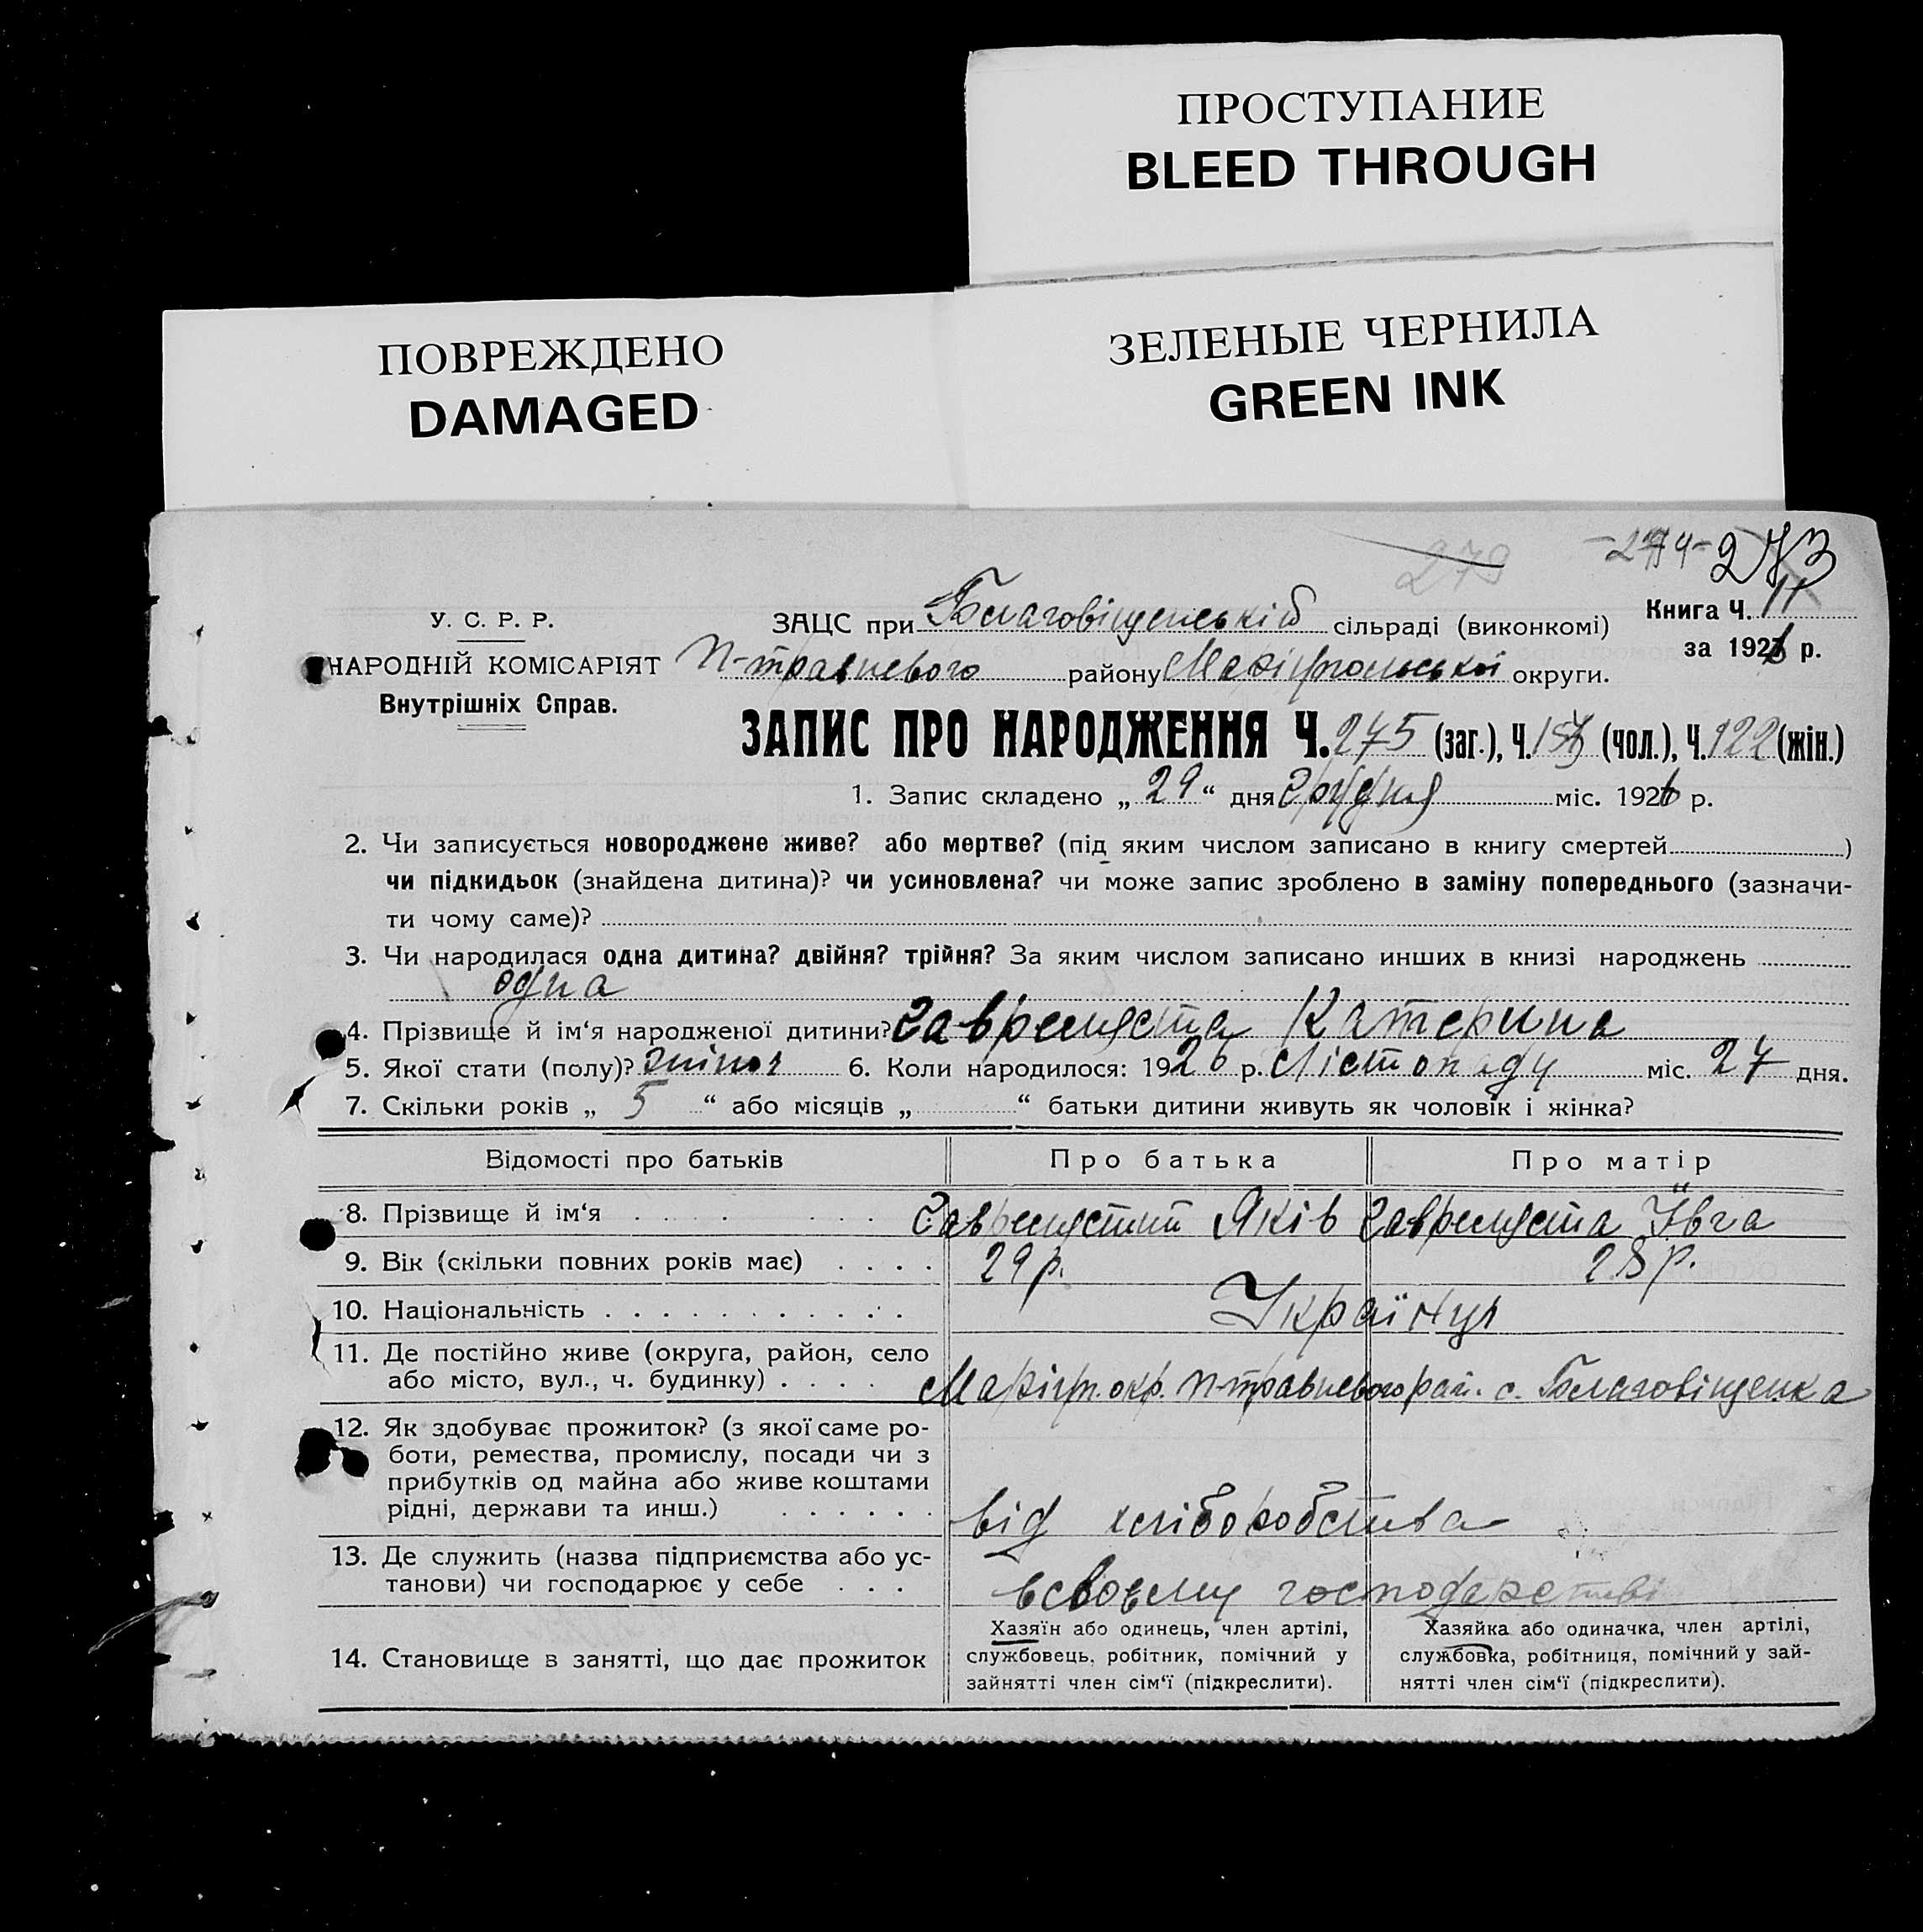 ПРОСТУПАНИЕ
BLEED THROUGH
ПОВРЕЖДЕНО
DAMAGED
ЗЕЛЕНЫЕ ЧЕРНИЛА
GREEN INK
279 -274- 273
У. С. Р. Р.
НАРОДНІЙ КОМІСАРІЯТ
Внутрішніх Справ.
ЗАЦС при Благовіщенській сільраді (виконкомі)
Книга Ч. 11
за 1926 р.
П-травневого району Маріупольської округи.
ЗАПИС ПРО НАРОДЖЕННЯ Ч. 275 (заг.), Ч. 153 (чол.), Ч. 122 (жін.)
1. Запис складено „ 29 “ дня Грудня міс. 1926 р.
2. Чи записується новороджене живе? або мертве? (під яким числом записано в книгу смертей )
чи підкидьок (знайдена дитина)? чи усиновлена? чи може запис зроблено в заміну попереднього (зазначи-
ти чому саме)?
3. Чи народилася одна дитина? двійня? трійня? За яким числом записано инших в книзі народжень
одна
4. Прізвище й ім‘я народженої дитини? Катерина
5. Якої стати (полу)? жіноч 6. Коли народилося: 1926 р. Лістопаду міс. 27 дня.
7. Скільки років „ 5 “ або місяців „ “ батьки дитини живуть як чоловік і жінка?
Відомості про батьків Про батька Про матір
8. Прізвище й ім‘я Яків Ївга
9. Вік (скільки повних років має) 29 р. 28 р.
10. Національність Українці
11. Де постійно живе (округа, район, село
або місто, вул., ч. будинку) Маріуп. окр. П-травневого рай. с. Благовіщенка
12. Як здобуває прожиток? (з якої саме ро-
боти, ремества, промислу, посади чи з
прибутків од майна або живе коштами
рідні, держави та инш.) від хліборобства
13. Де служить (назва підприємства або ус-
танови) чи господарює у себе в своєму господарстві
14. Становище в занятті, що дає прожиток
Хазяїн або одинець, член артілі,
службовець, робітник, помічний у
зайнятті член сім‘ї (підкреслити).
Хазяйка або одиначка, член артілі,
службовка, робітниця, помічний у зай-
нятті член сім‘ї (підкреслити).